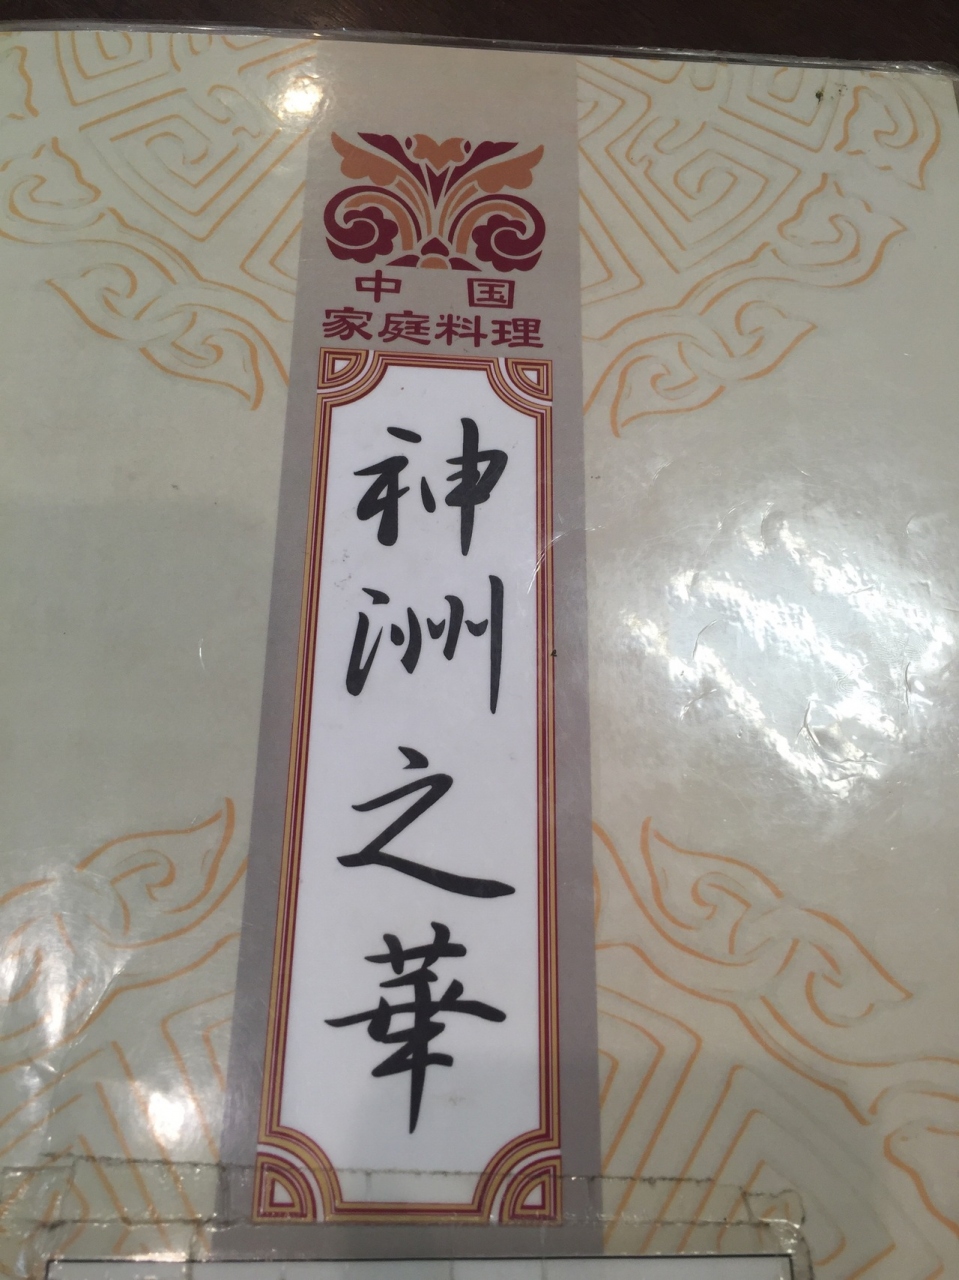 中国
家庭料理
神洲之華